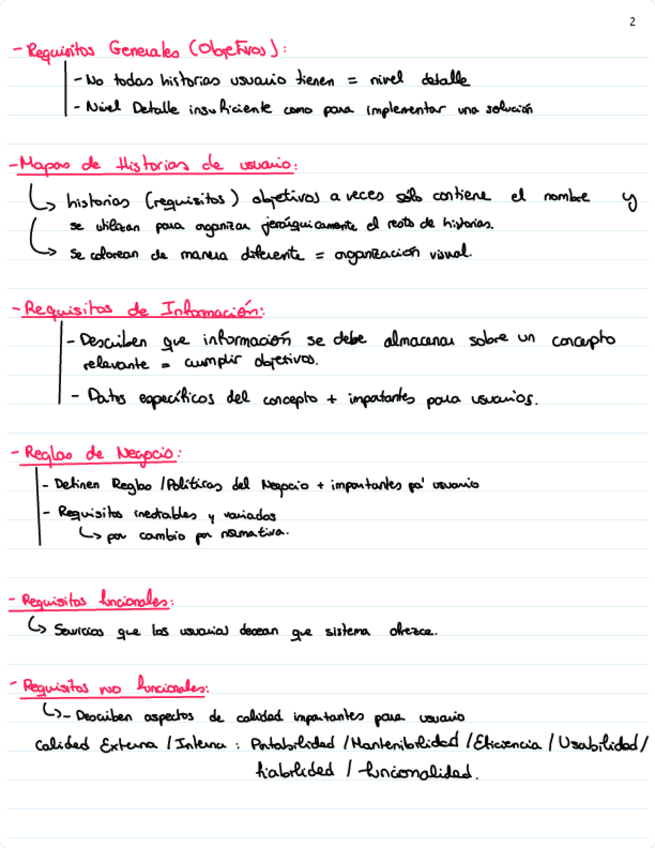 2
- Requisitos Generales (Objetivos):
- No todas historias usuario tienen = nivel detalle
- Nivel Detalle insuficiente como para implementar una solución
- Mapas de Historias de usuario:
historias (requisitos) objetivos a veces sólo contiene el nombre y
se utilizan para organizar jerárquicamente el resto de historias.
Se colorean de manera diferente = organización visual.
- Requisitos de Información:
- Describen que información se debe almacenar sobre un concepto
relevante = cumplir objetivos.
- Datos específicos del concepto + importantes para usuarios.
- Reglas de Negocio:
- Definen Reglas / Políticas del Negocio + importantes pa' usuario
- Requisitos inestables y variados
por cambio por normativa.
- Requisitos funcionales:
Servicios que los usuarios desean que sistema ofrezca.
- Requisitos no funcionales:
- Describen aspectos de calidad importantes para usuario
Calidad Externa / Interna : Portabilidad / Mantenibilidad / Eficiencia / Usabilidad /
fiabilidad / funcionalidad.